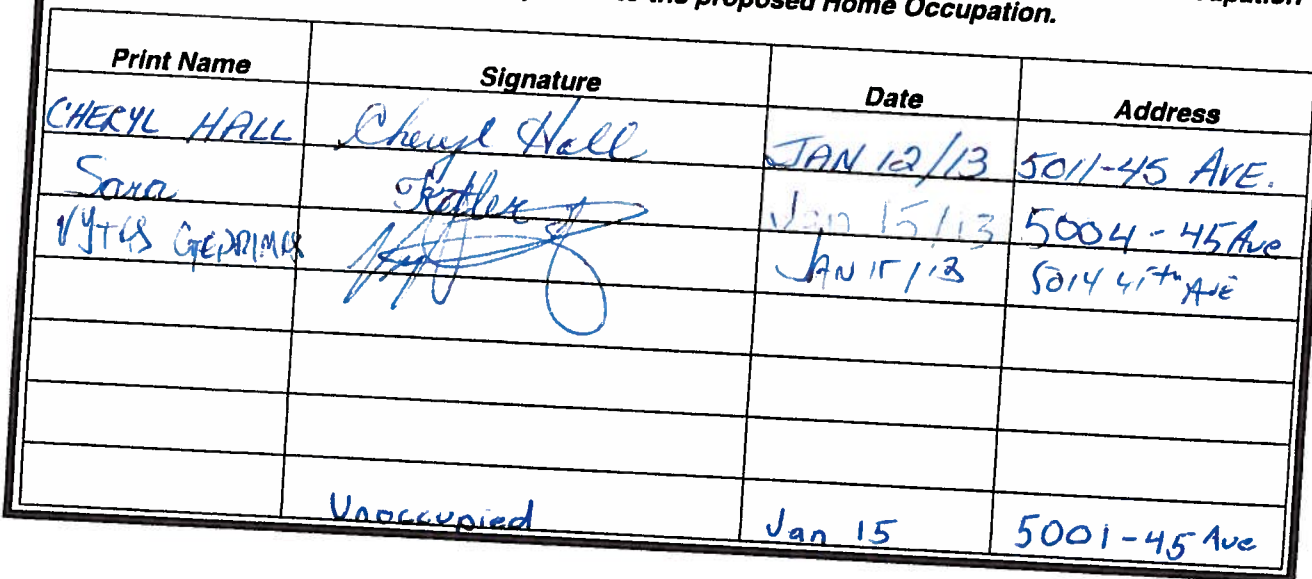 the proposed Home Occupation.
Print Name Signature Date Address
CHERYL HALL Cheryl Hall JAN 12/13 5011-45 AVE.
Sara Jan 15/13 5004-45 Ave
JAN 15/13 5014 AVE
Unoccupied Jan 15 5001-45 Ave